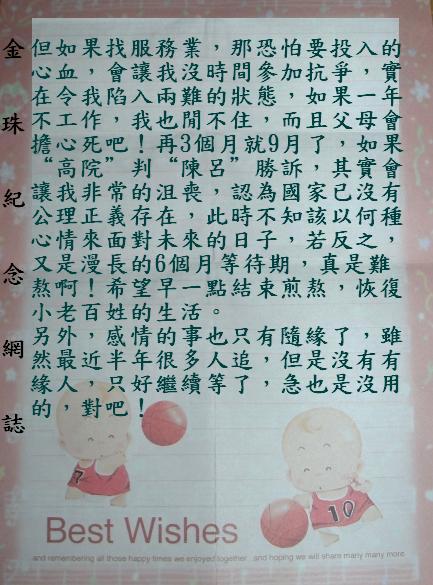 金珠紀念網誌
但如果找服務業，那恐怕要投入的
心血，會讓我沒時間參加抗爭，實
在令我陷入兩難的狀態，如果一年
不工作，我也閒不住，而且父母會
擔心死吧！再3個月就9月了，如果
“高院”判“陳呂”勝訴，其實會
讓我非常的沮喪，認為國家已沒有
公理正義存在，此時不知該以何種
心情來面對未來的日子，若反之，
又是漫長的6個月等待期，真是難
熬啊！希望早一點結束煎熬，恢復
小老百姓的生活。
另外，感情的事也只有隨緣了，雖
然最近半年很多人追，但是沒有有
緣人，只好繼續等了，急也是沒用
的，對吧！
7
10
Best Wishes
and remembering all those happy times we enjoyed together...and hoping we will share many many more